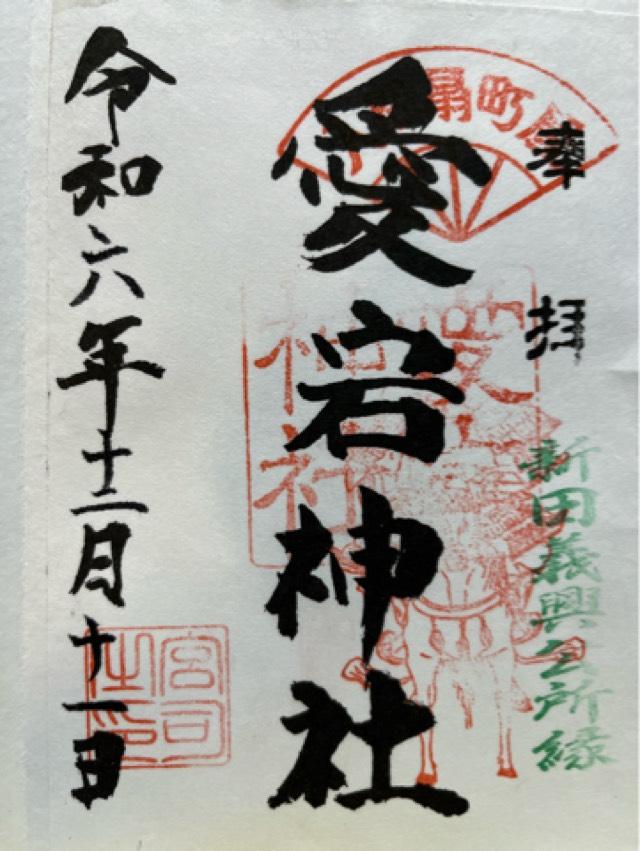 奉拝
新田義興公所縁
愛宕神社
令和六年十二月十一日
扇町屋
愛宕
神社
宮司
之印